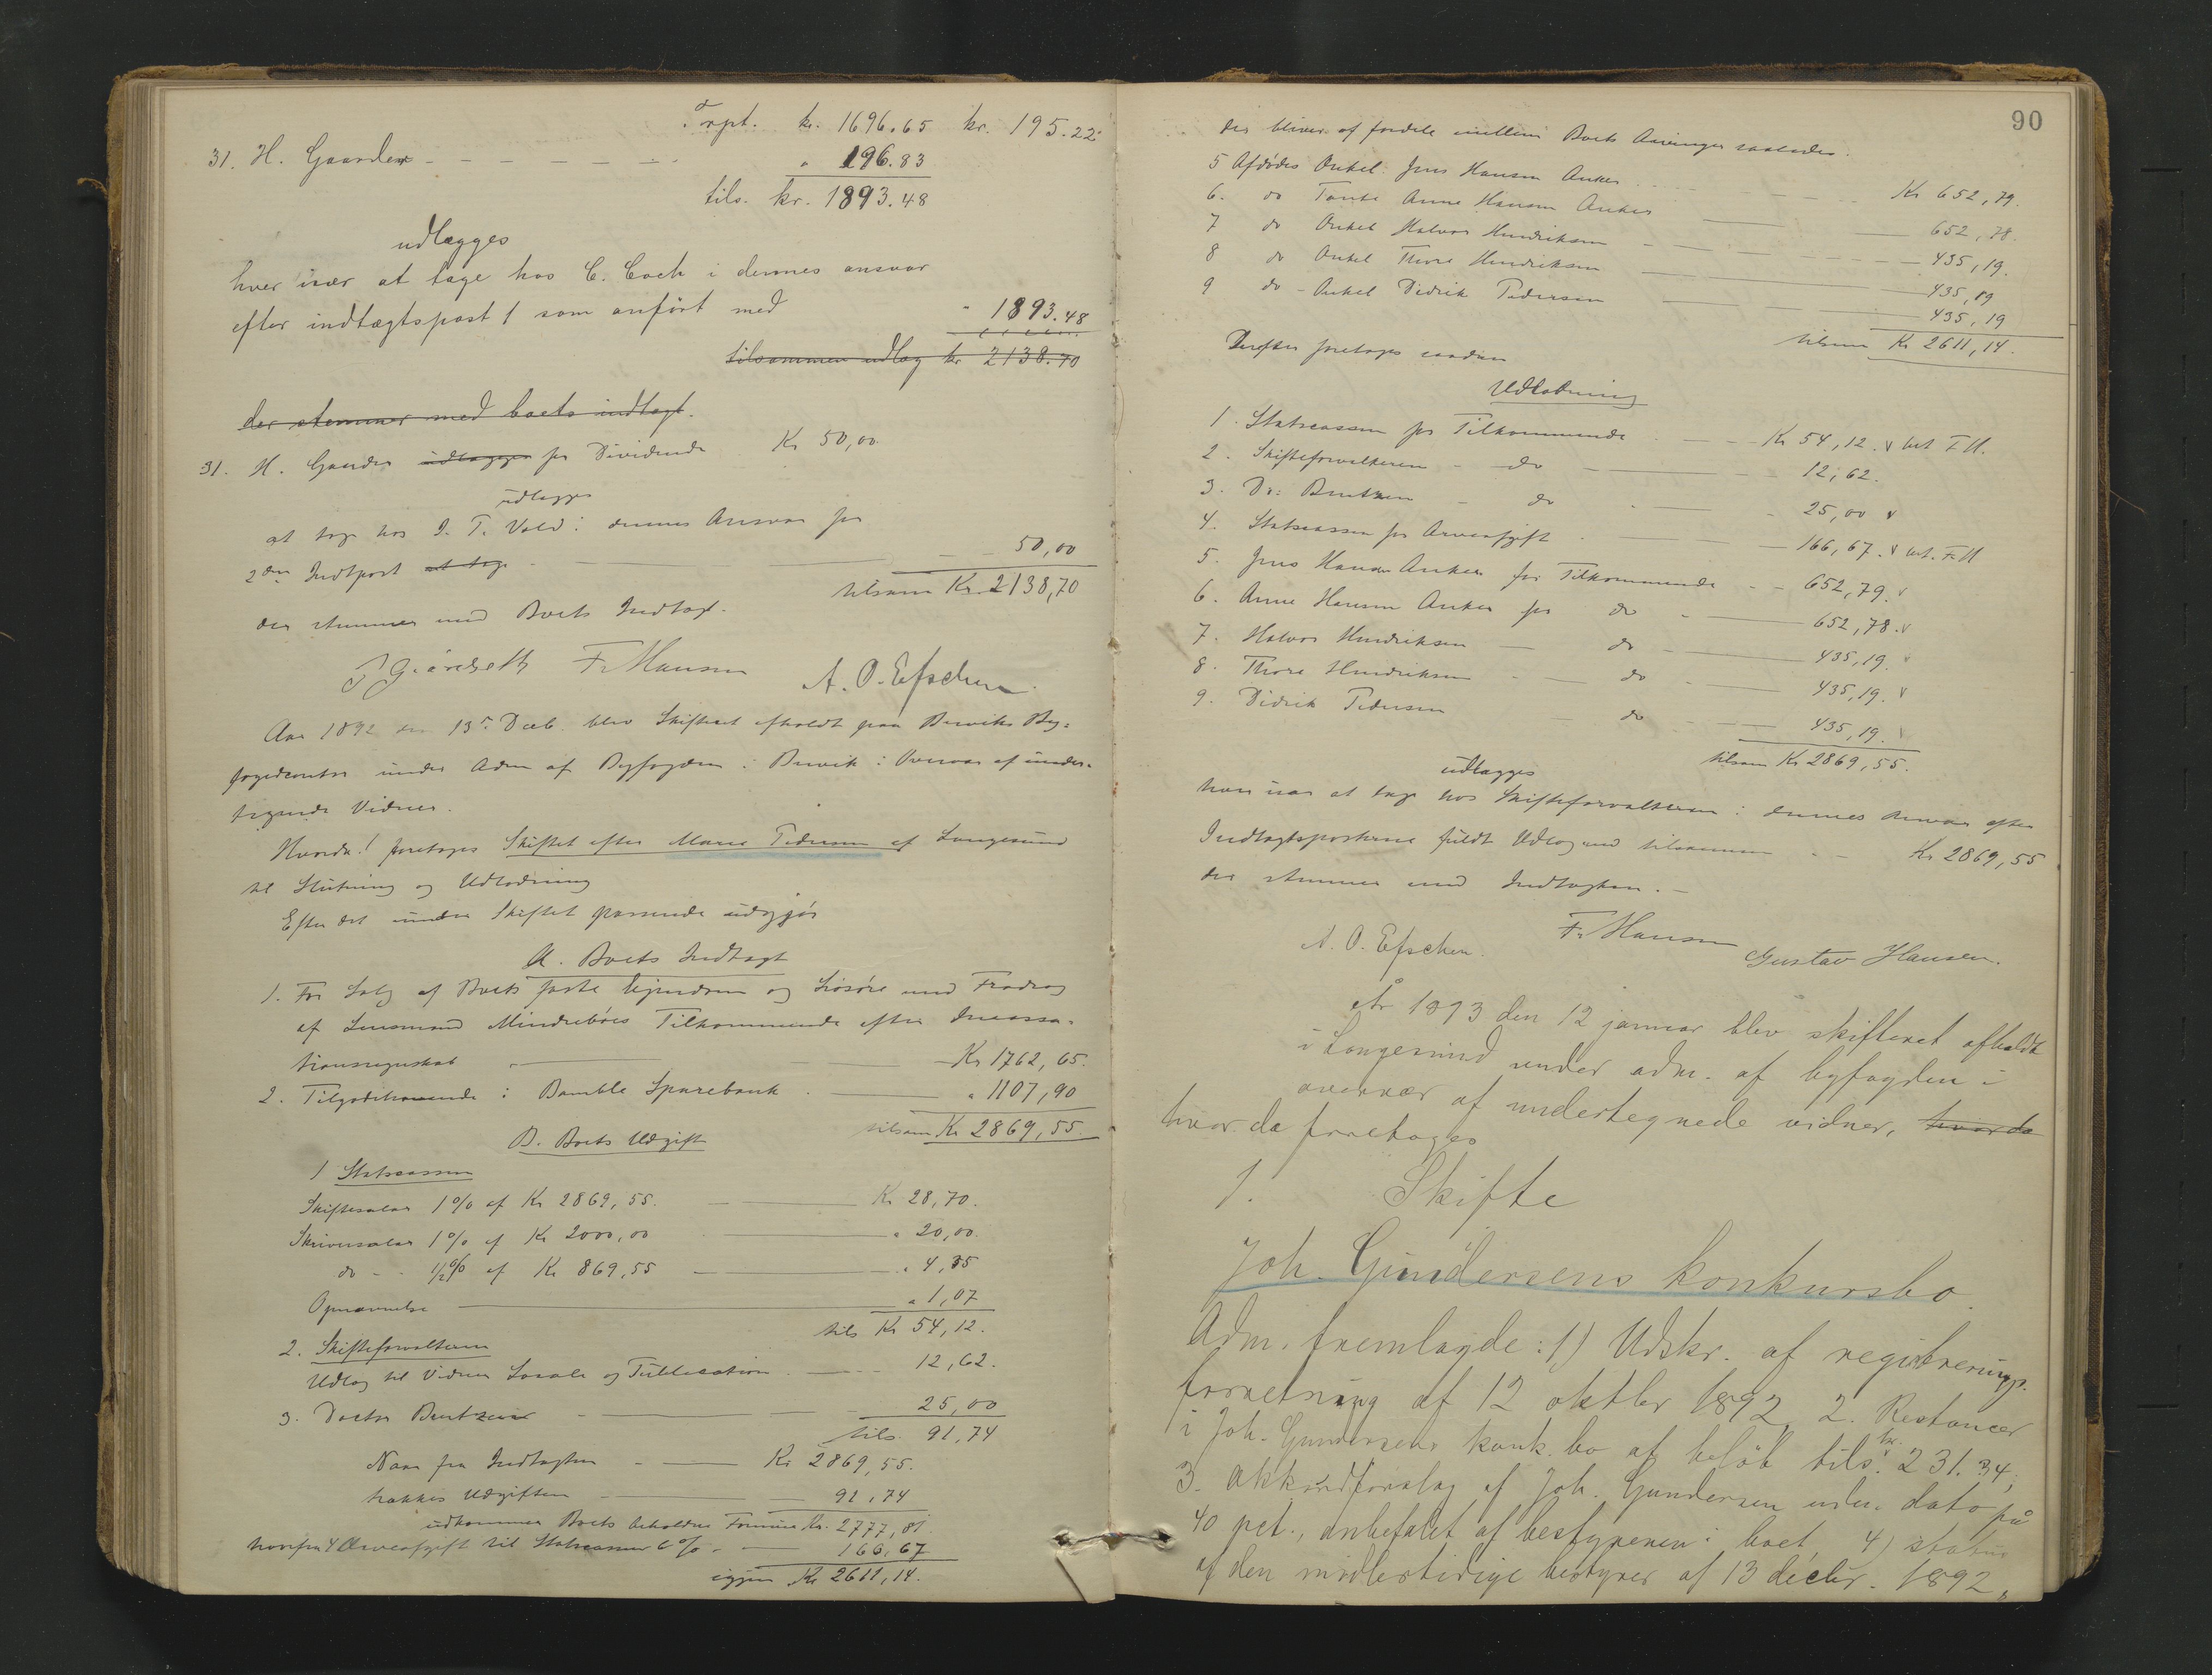 Trpt. kr. 1696.65 kr. 195.22
31. H. Gaarder " 196.83
tils. kr. 1893.48
udlægges
hver især at tage hos C. Coch i dennes ansvar
efter indtægtspost 1 som anført med " 1893.48
tilsammen udlæg kr. 2138.70
der stemmer med boets indtægt.
31. H. Gaarder udlægges for Dividende Kr 50,00
udlægges
at tage hos I. T. Vold i dennes Ansvar for
2den Indtpost at tage 50,00
tilsam Kr. 2138,70
der stemmer med Boets Indtægt.
Fr Hansen A. O. Efschen.
Aar 1892 den 13de Decb. blev Skifteret afholdt paa Breviks By-
fogedcontor under Adm af Byfogden i Brevik i Overvær af under-
tegnede Vidner.
Hvorda! foretoges Skiftet efter Maren Pedersen af Langesund
til Slutning og Udlodning
Efter det under Skiftet passerede udgjør
A. Boets Indtægt
1. For Salg af Boets faste Ejendom og Løsøre med Fradrag
af Lensmand Mindrebøes Tilkommende efter Incassa-
tionsregnskab Kr 1762,65.
2. Tilgodehavende i Bamble Sparebank " 1107,90
tilsam Kr 2869,55.
B. Boets Udgift
1 Statscassen
Skiftesalær 1% af Kr 2869,55. Kr 28,70.
Skriversalær 1% af Kr 2000,00 " 20,00.
do - ½% af Kr 869,55 " 4,35
Opnævnelse " 1,07
tils Kr 54,12.
2. Skifteforvalteren
Udlæg til Vidner Locale og Publication 12,62.
3. Doctor Bentzen 25,00
tils. 91,74
Naar fra Indtægten Kr 2869,55.
trækkes Udgiften 91,74
udkommer Boets beholdne Formue Kr. 2777,81.
hvorfra 4 Arveafgift til Statscassen 6% 166,67
igjen Kr 2611,14.
90
der bliver at fordele mellem Boets Arvinger saaledes.
5 Afdødes Onkel Jens Hansen Anker Kr 652,79.
6. do Tante Anne Hansen Anker 652,78.
7 do Onkel Halvor Hendriksen 435,19.
8 do Onkel Thore Hendriksen 435,19
9 do - Onkel Didrik Pedersen 435,19
tilsam Kr 2611,14.
Derefter foretoges saadan
Udlodning
1. Statscassen for Tilkommende Kr 54,12. v bet F.H.
2. Skifteforvalteren do 12,62.
3. Dr: Bentzen do 25,00 v
4. Statscassen for Arveafgift 166,67. v bet. F.H
5. Jens Hansen Anker for Tilkommende 652,79. v
6. Anne Hansen Anker for do 652,78. v
7. Halvor Hendriksen do 435,19. v
8. Thore Hendriksen do 435,19. v
9. Didrik Pedersen do 435,19. v
tilsam Kr 2869,55.
udlægges
hver især at tage hos Skifteforvalteren i dennes Ansvar efter
Indtægtsposterne fuldt Udlæg med tilsammen Kr 2869,55
der stemmer med Indtægten. -
A. O. Efschen. Fr Hansen Gustav Hansen.
År 1893 den 12 januar blev skifteret afholdt
i Langesund under adm. af byfogden i
overvær af undertegnede vidner, hvor da
hvor da foretoges
1. Skifte
Joh. Gundersens konkursbo.
Adm. fremlagde: 1) Udskr. af registrerings-
forretning af 12 oktbr 1892, 2. Restancer
i Joh. Gundersens konk.bo af beløb tils. kr. 231.34,
3. Akkordforslag af Joh. Gundersen uden dato på
40 pct., anbefalet af bestyreren i boet 4) status
af den midlertidige bestyrer af 13 decbr. 1892,